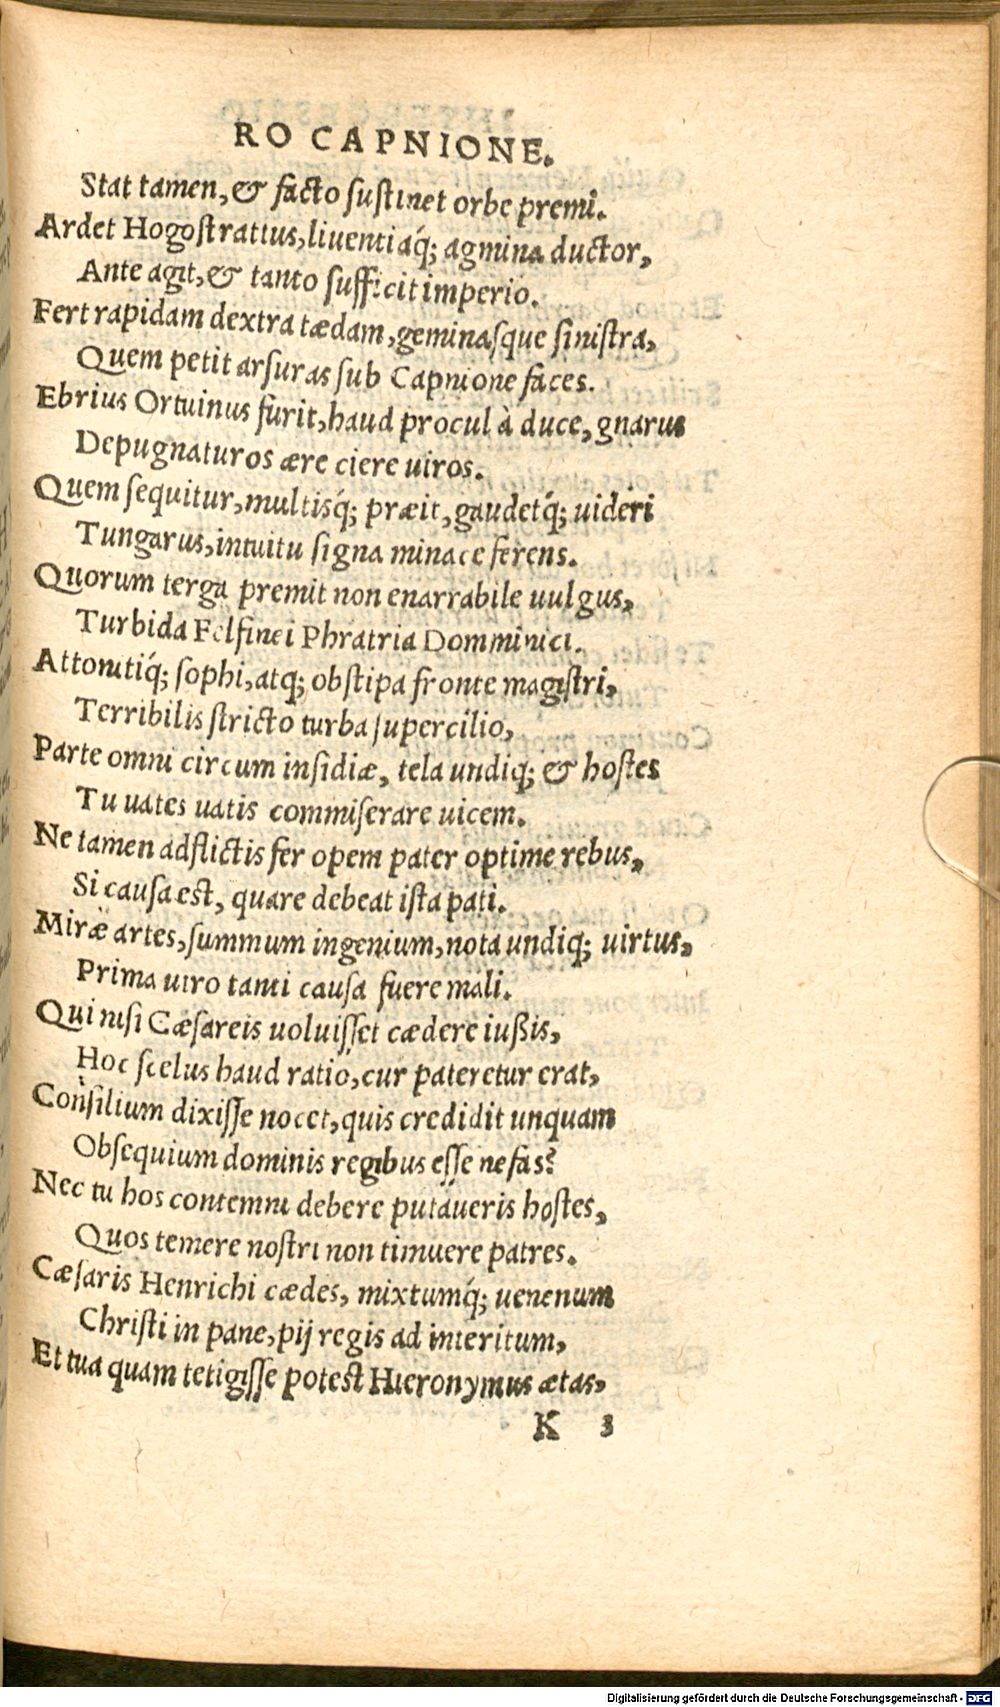 RO CAPNIONE.
Stat tamen, & facto sustinet orbe premi.
Ardet Hogostrattus, liuentiaq́; agmina ductor,
Ante agit, & tanto sufficit imperio.
Fert rapidam dextra tædam, geminasque sinistra,
Quem petit arsuras sub Capnione faces.
Ebrius Ortuinus furit, haud procul à duce, gnarus
Depugnaturos ære ciere uiros.
Quem sequitur, multisq́; præit, gaudetq́; uideri
Tungarus, intuitu signa minace ferens.
Quorum terga premit non enarrabile uulgus,
Turbida Felfinei Phratria Domminici.
Attonitiq́; sophi, atq; obstipa fronte magistri,
Terribilis stricto turba supercilio,
Parte omni circum insidiæ, tela undiq; & hostes
Tu uates uatis commiserare uicem.
Ne tamen adflictis fer opem pater optime rebus,
Si causa est, quare debeat ista pati.
Miræ artes, summum ingenium, nota undiq; uirtus,
Prima uiro tanti causa fuere mali.
Qui nisi Cæsareis uoluisset cædere iußis,
Hoc scelus haud ratio, cur pateretur erat,
Consilium dixisse nocet, quis credidit unquam
Obsequium dominis regibus esse nefas?
Nec tu hos contemni debere putaueris hostes,
Quos temere nostri non timuere patres.
Cæsaris Henrichi cædes, mixtumq́; uenenum
Christi in pane, pij regis ad interitum,
Et tua quam tetigisse potest Hieronymus ætas,
K 3
Digitalisierung gefördert durch die Deutsche Forschungsgemeinschaft - DFG